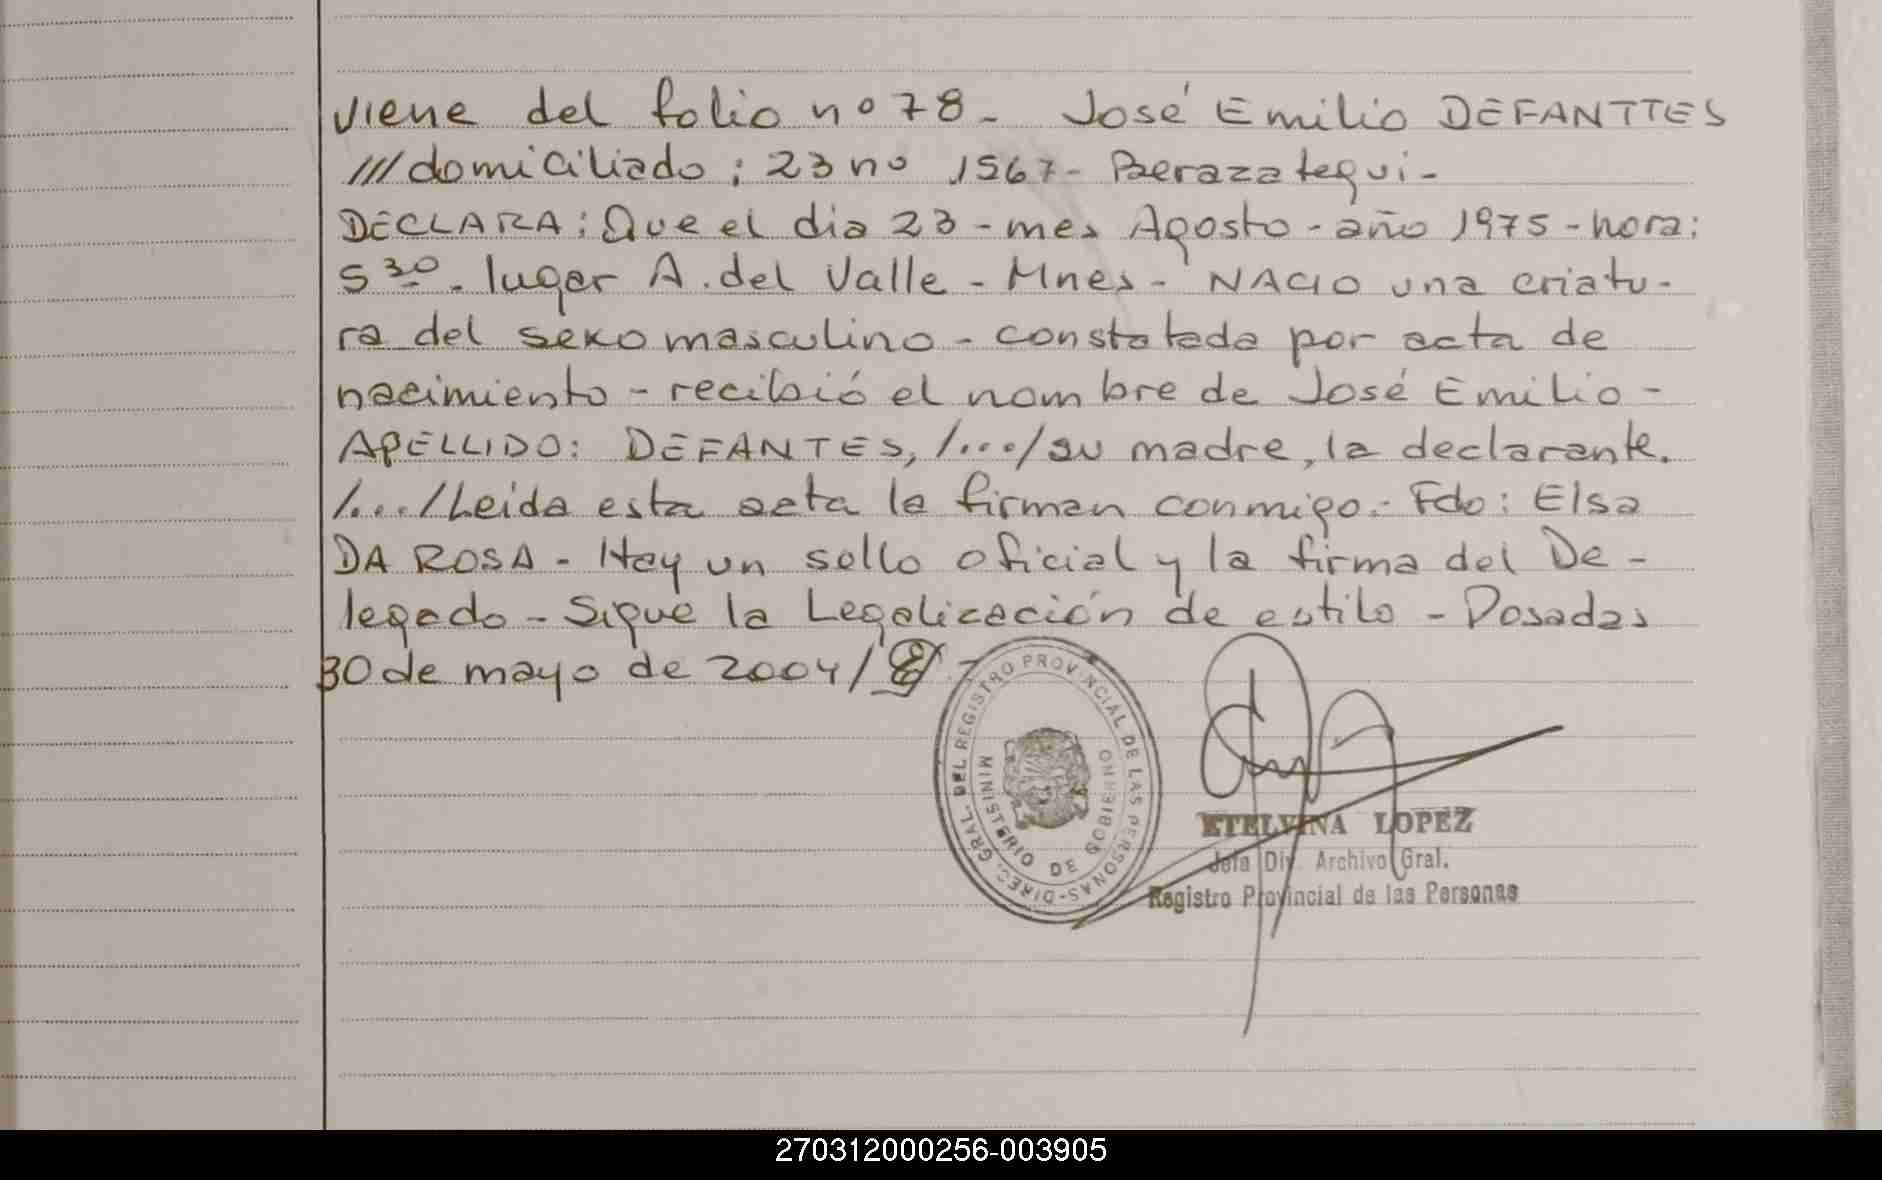 viene del folio nº 78 - José Emilio DEFANTTES
/// domiciliado : 23 nº 1567 - Berazategui -
DECLARA : Que el dia 23 - mes Agosto - año 1975 - hora:
5 30 - lugar A. del Valle - Mnes - NACIO una criatu-
ra del sexo masculino - constatada por acta de
nacimiento - recibió el nombre de José Emilio -
APELLIDO: DEFANTES, /.../ su madre, la declarante.
/.../ Leida esta acta la firman conmigo.- Fdo: Elsa
DA ROSA - Hay un sello oficial y la firma del De-
legado - Sigue la Legalización de estilo - Posadas
30 de mayo de 2004 /
DIREC. GRAL. DEL REGISTRO PROVINCIAL DE LAS PERSONAS-
MINISTERIO DE GOBIERNO
ETELVINA LOPEZ
Jefa Div. Archivo Gral.
Registro Provincial de las Personas
270312000256-003905